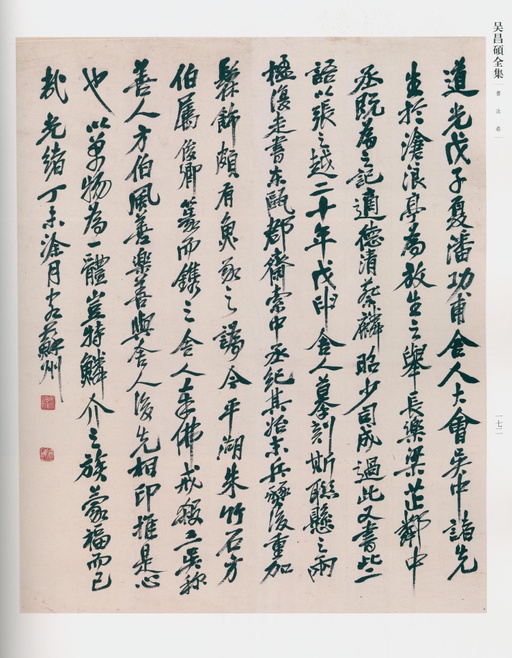 道光戊子夏潘功甫舍人大會吴中諸先
生於滄浪亭為放生之舉長樂梁茝鄰中
丞既為之記適德清蔡麟昭少司成過此又書此二
語以張之越二十年戊申舍人摹刻斯聯懸之兩
楹復走書東甌郡齋索中丞紀其始末兵燹後重加
髹飾頗有魚豕之譌今平湖朱竹石方
伯屬俊卿篆而鐫之舍人奉佛戒殺三吴称
善人方伯風善樂善與舍人後先相印推是心
也以萬物為一體豈特鱗介之族蒙福而已
哉光緒丁未涂月客蘇州
吴昌碩全集
書法卷
一七二